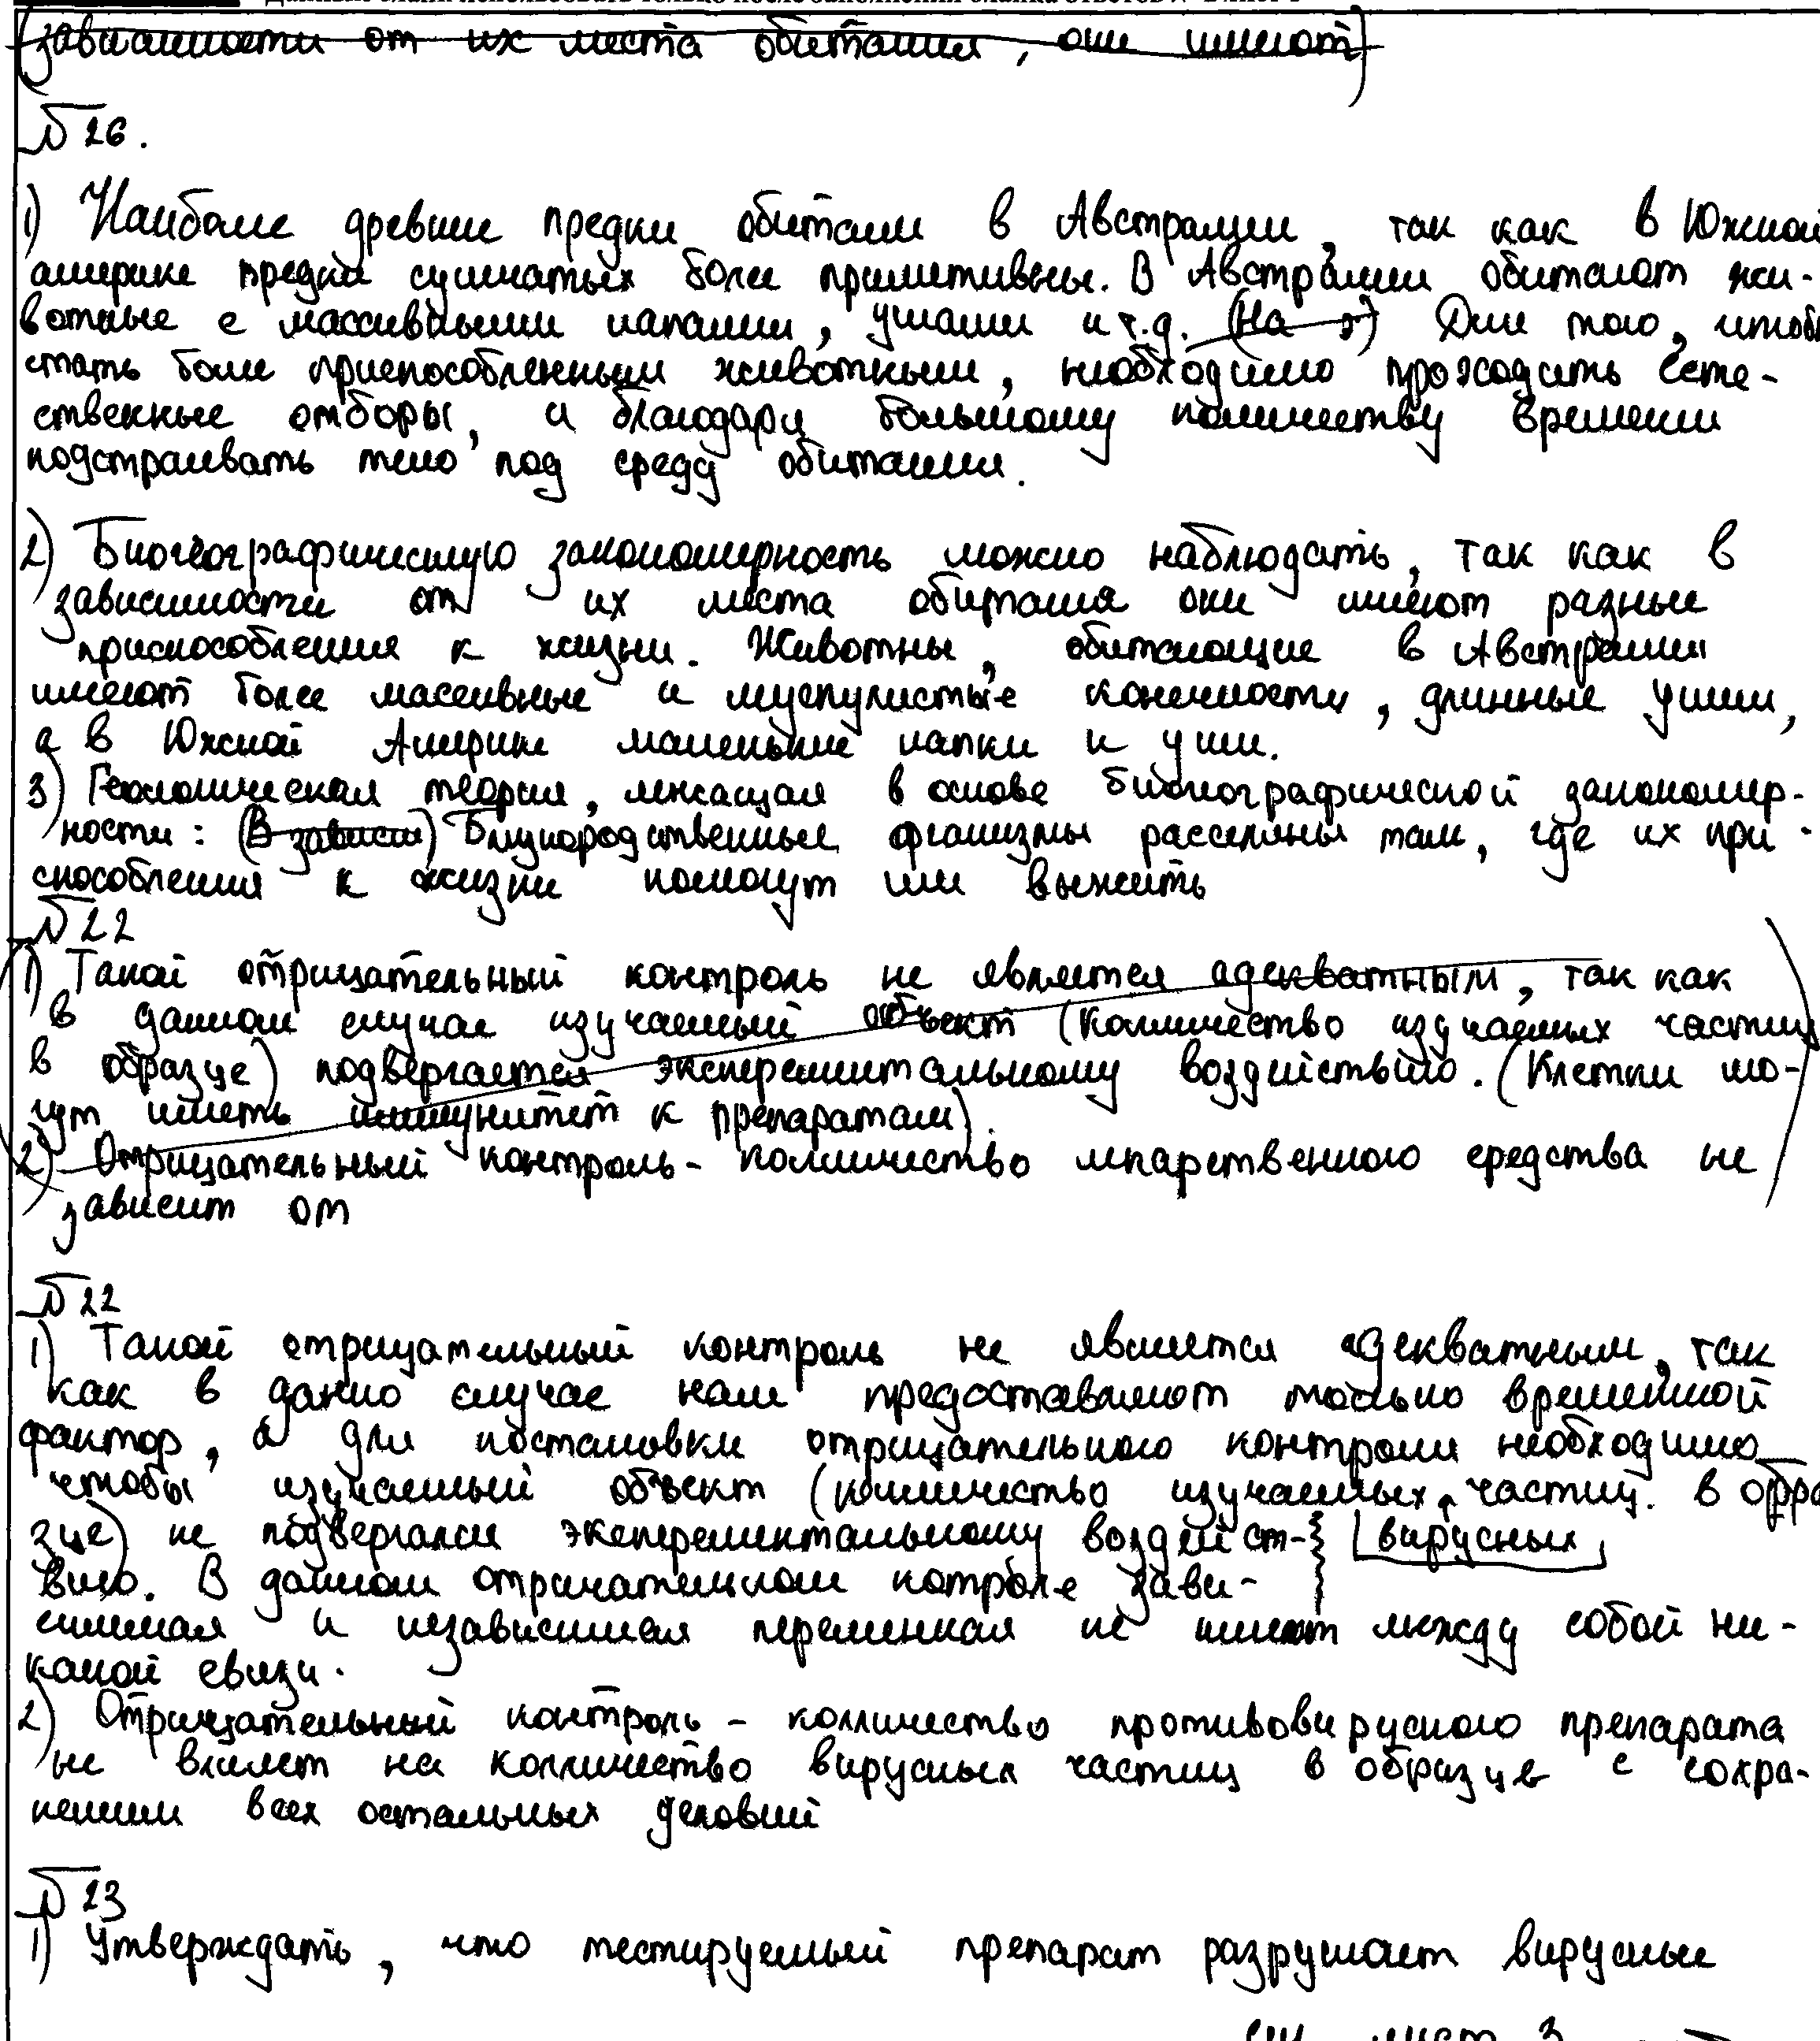 (зависимости от их места обитания, они имеют)
№26.
1) Наиболее древние предки обитали в Австралии, так как в Южной
америке предки сумчатых более примитивны. В Австралии обитают жи-
вотные с массивными лапами, ушами и т.д. (На э) Для того, чтобы
стать более приспособленным животным, необходимо проходить есте-
ственные отборы, и благодаря большому количеству времени
подстраивать тело под среду обитания.
2) Биогеографическую закономерность можно наблюдать, так как в
зависимости от их места обитания они имеют разные
приспособления к жизни. Животные, обитающие в Австралии
имеют более массивные и мускулистые конечности, длинные уши,
а в Южной Америке маленькие лапки и уши.
3) Геологическая теория, лежащая в основе биогеографической закономер-
ности: (В зависи) Близкородственные организмы расселены там, где их при-
способления к жизни помогут им выжить
№22
1) Такой отрицательный контроль не является адекватным, так как
в данном случае изучаемый объект (колличество изучаемых частиц
в образце) подвергается эксперементальному воздействию. (Клетки мо-
гут иметь иммунитет к препаратам).
2) Отрицательный контроль - колличество лекарственного средства не
зависит от
№22
1) Такой отрицательный контроль не является адекватным, так
как в данно случае нам предоставляют только временной
фактор, а для постановки отрицательного контроля необходимо
чтобы изучаемый объект (количество изучаемых частиц. в обра
зце) не подвергался эксперементальному воздейст- вирусных
вию. В данном отричательном котроле зави-
симая и независимая переменная не имеют между собой ни-
какой связи.
2) Отрицательный контроль - колличество противовирусного препарата
не влияет на колличество вирусных частиц в образце с сохра-
нением всех остальных условий
№23
1) Утверждать, что тестируемый препарат разрушает вирусные